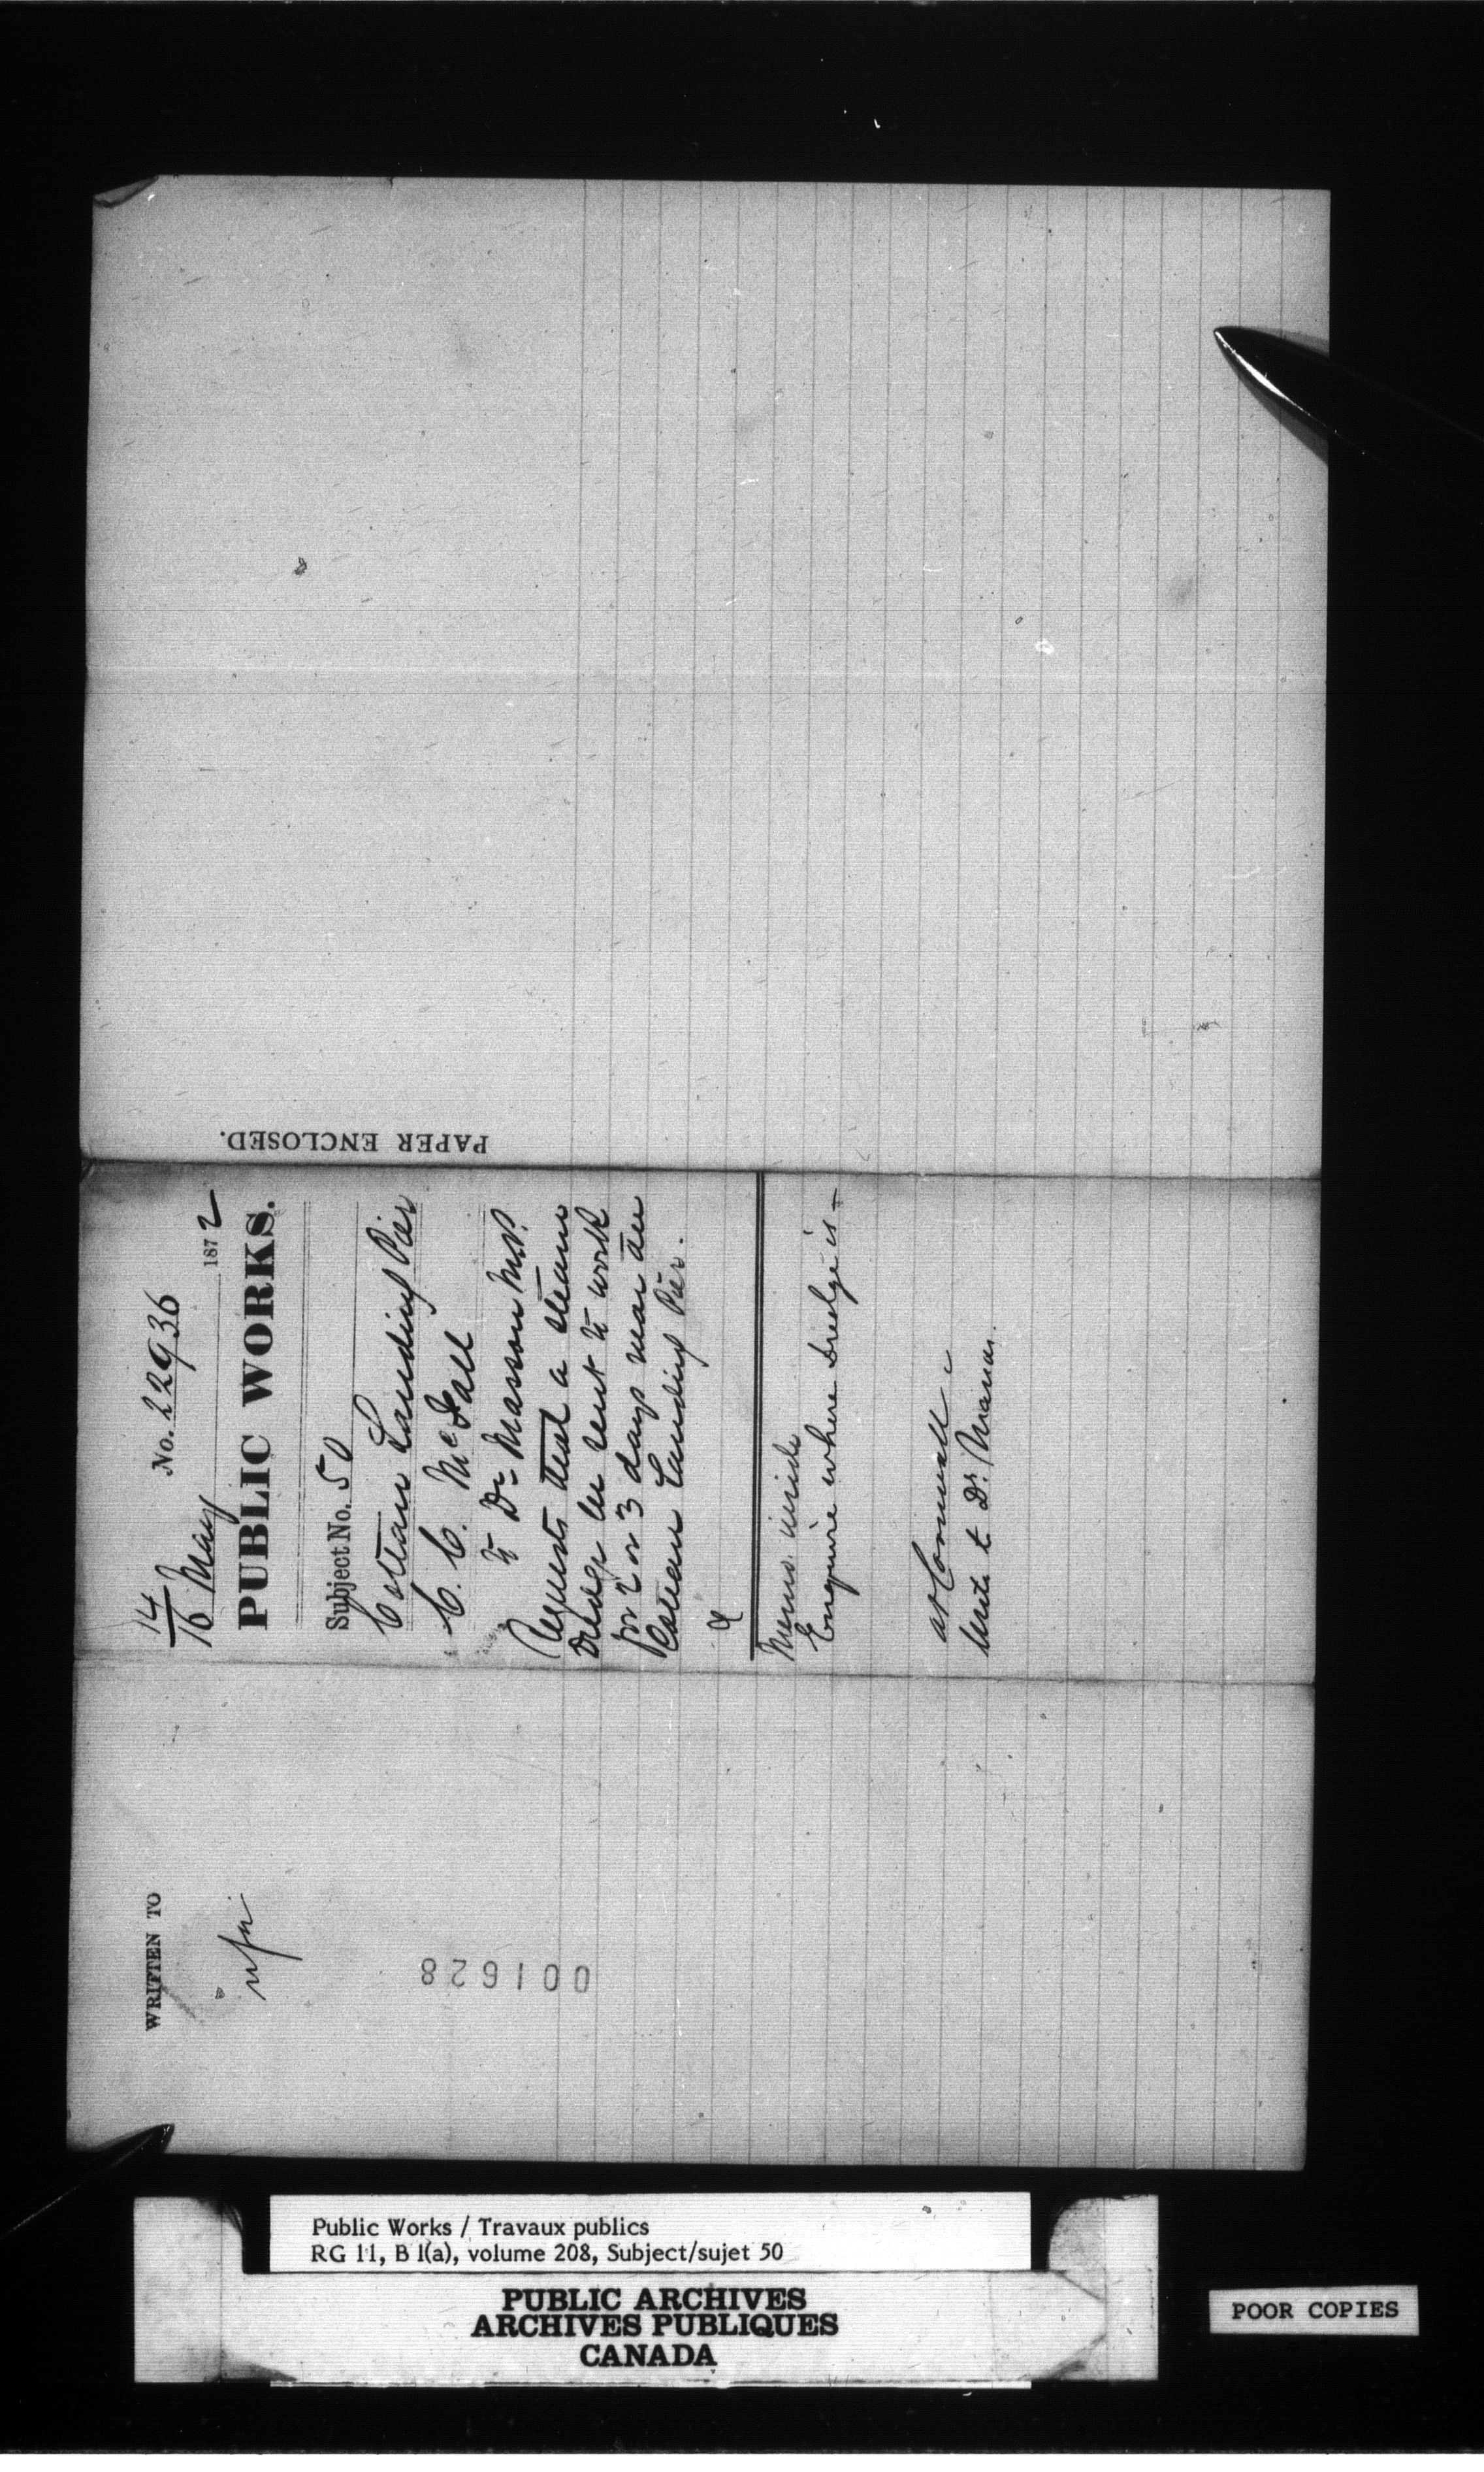 PAPER ENCLOSED.
14
16 May
No. 22936
1872
PUBLIC WORKS.
Subject No. 50
Coteau Landing Pier
C. C. McFall
to Dr Masson M.P.
Requests that a steam
dredge be sent to work
for 2 or 3 days near the
Coteau Landing Pier.
Memo. inside
Enquire where dredge is -
at Cornwall -
write to Dr. Masson
WRITTEN TO
001628
Public Works / Travaux publics
RG 11, B 1(a), volume 208, Subject/sujet 50
PUBLIC ARCHIVES
ARCHIVES PUBLIQUES
CANADA
POOR COPIES